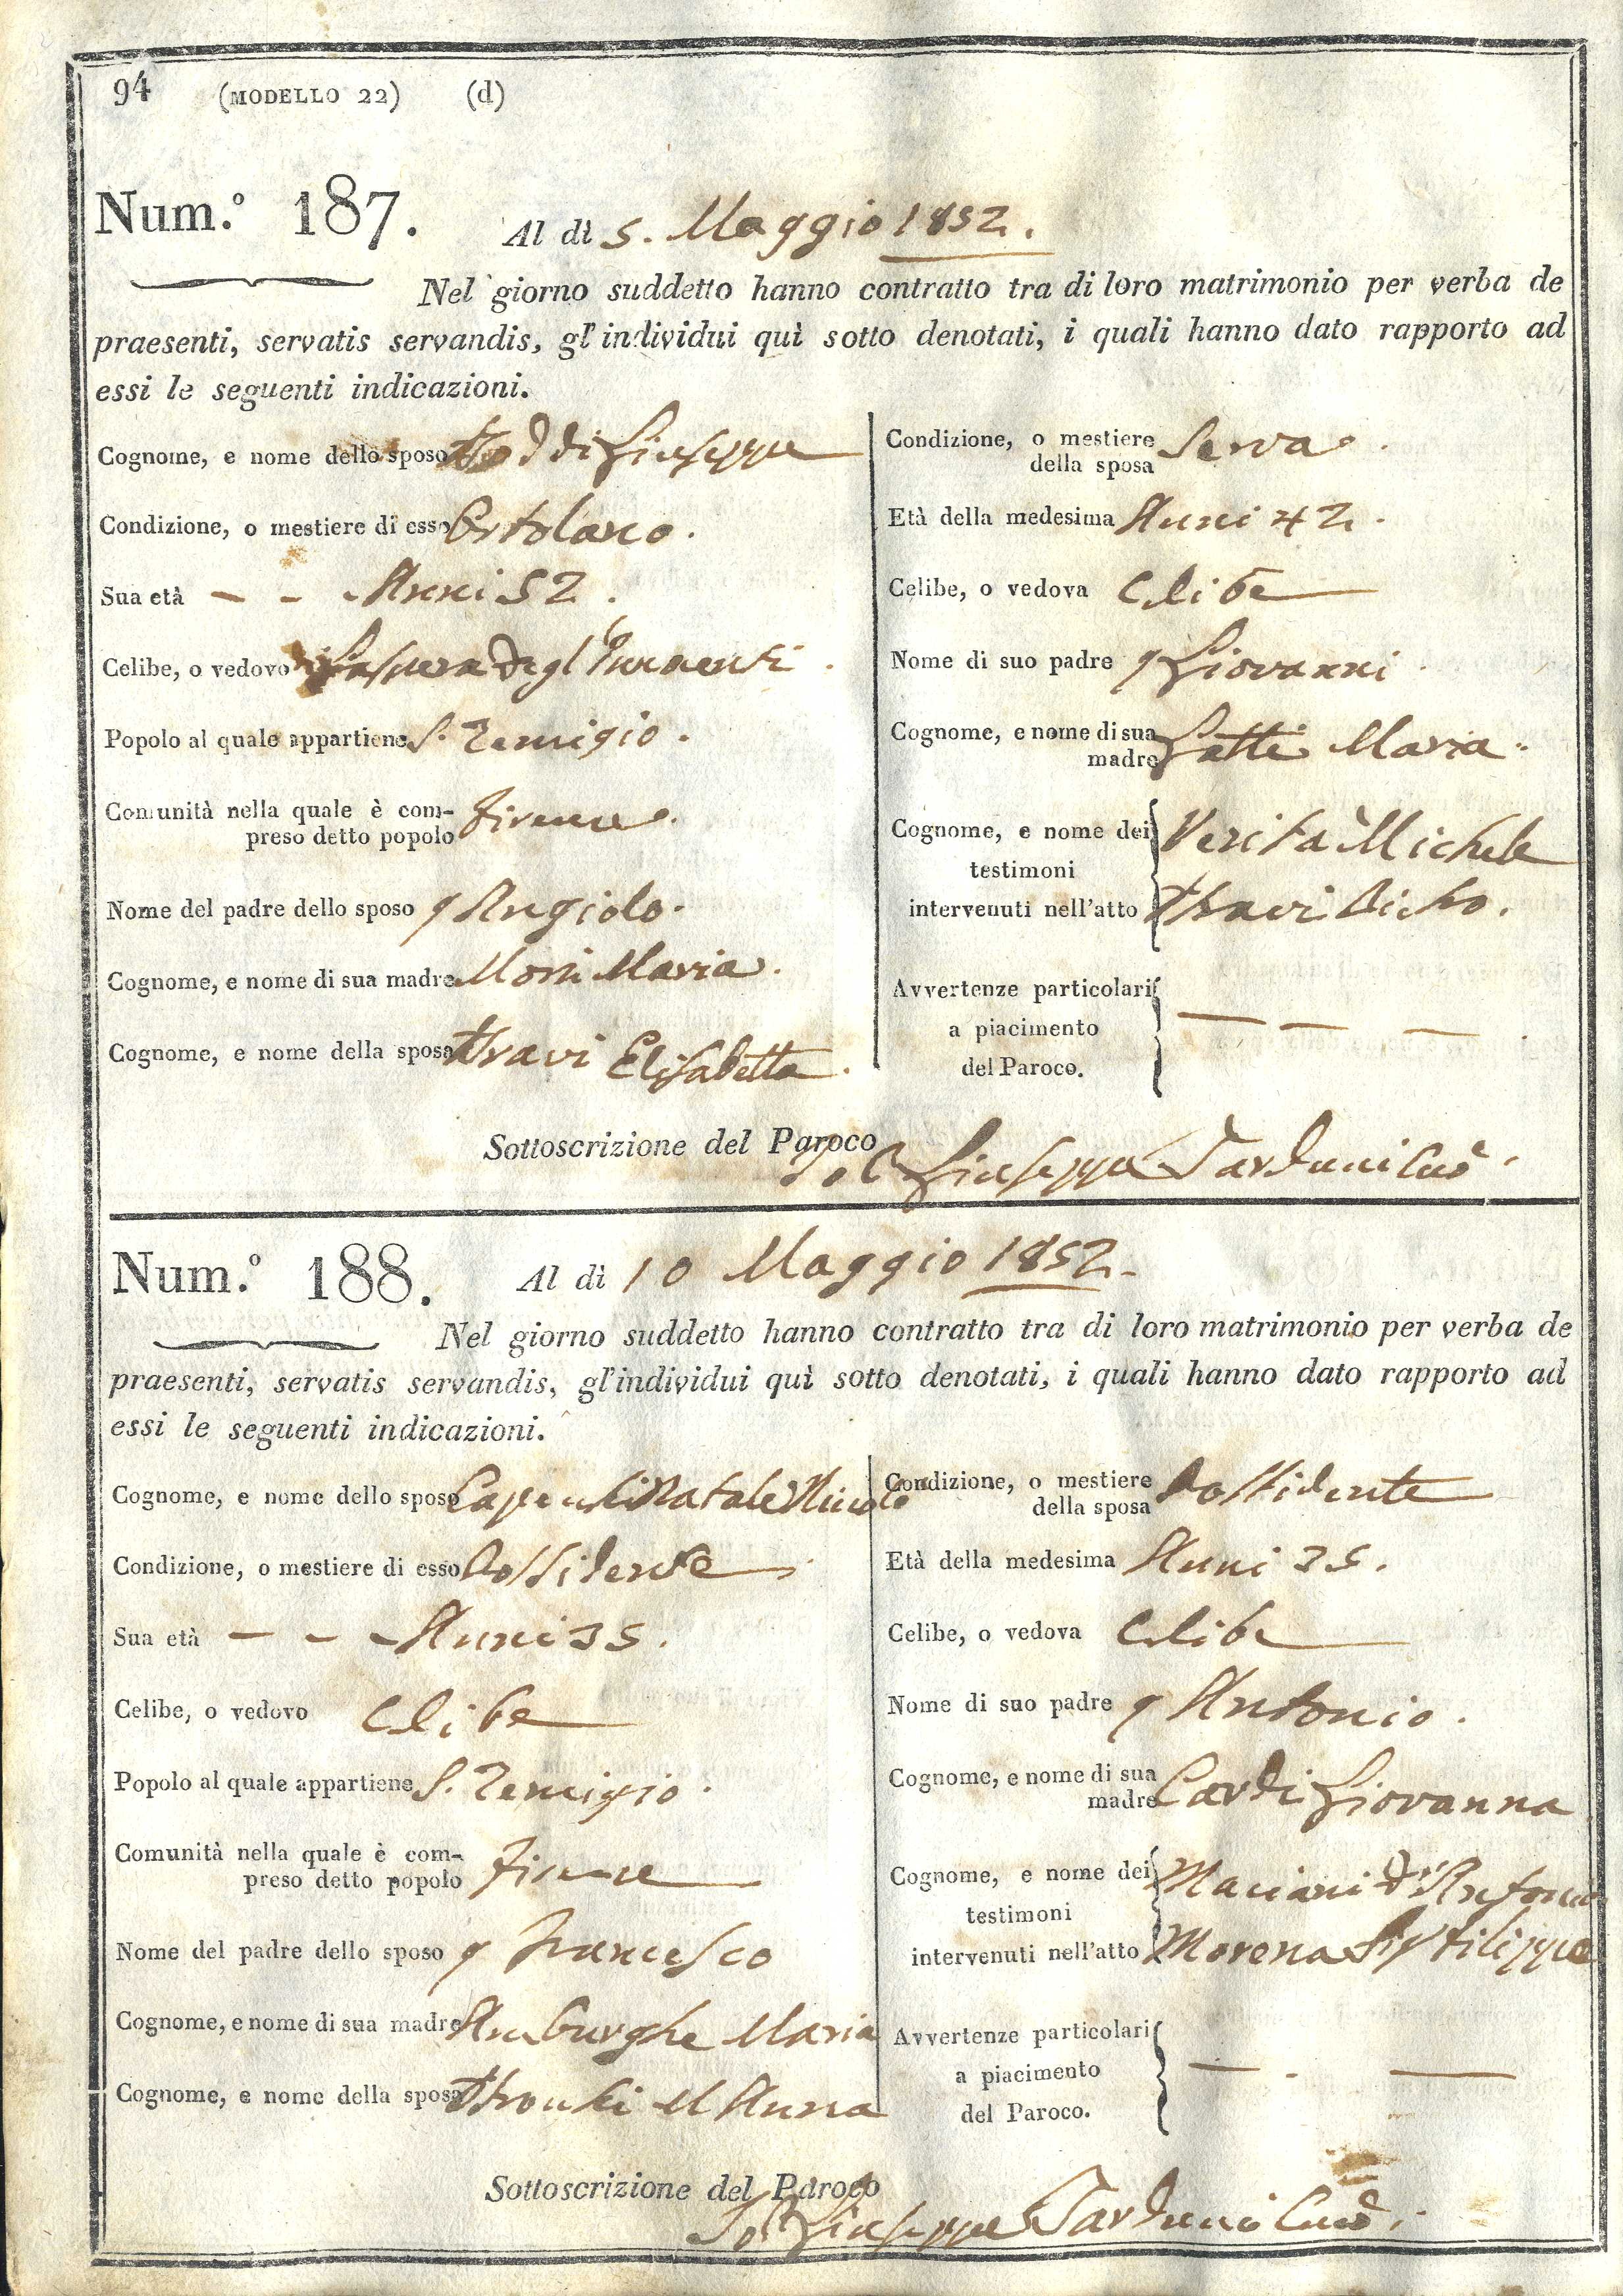 94 (MODELLO 22) (d)
Num.º 187. Al dì 5. Maggio 1852.
Nel giorno suddetto hanno contratto tra di loro matrimonio per verba de
praesenti, servatis servandis, gl'individui quì sotto denotati, i quali hanno dato rapporto ad
essi le seguenti indicazioni.
Cognome, e nome dello sposo Giuseppe
Condizione, o mestiere di esso Ortolano.
Sua età - - - Anni 52.
Celibe, o vedovo degl'Innocenti.
Popolo al quale appartiene S. Remigio.
Comunità nella quale è com-
preso detto popolo Firenze.
Nome del padre dello sposo q Angiolo.
Cognome, e nome di sua madre Maria.
Cognome, e nome della sposa Elisabetta.
Condizione, o mestiere
della sposa Serva.
Età della medesima Anni 42.
Celibe, o vedova Celibe
Nome di suo padre q Giovanni
Cognome, e nome di sua
madre Gatti Maria.
Cognome, e nome dei
testimoni
intervenuti nell'atto
Verità Michele
Avvertenze particolari
a piacimento
del Paroco.
Sottoscrizione del Paroco
Giuseppe Tarduni
Num.º 188. Al dì 10 Maggio 1852.
Nel giorno suddetto hanno contratto tra di loro matrimonio per verba de
praesenti, servatis servandis, gl'individui quì sotto denotati, i quali hanno dato rapporto ad
essi le seguenti indicazioni.
Cognome, e nome dello sposo Natale
Condizione, o mestiere di esso Possidente
Sua età - - - Anni 35.
Celibe, o vedovo Celibe
Popolo al quale appartiene S. Remigio.
Comunità nella quale è com-
preso detto popolo Firenze
Nome del padre dello sposo q Francesco
Cognome, e nome di sua madre Amburghe Maria
Cognome, e nome della sposa Anna
Condizione, o mestiere
della sposa Possidente
Età della medesima Anni 35.
Celibe, o vedova Celibe
Nome di suo padre q Antonio.
Cognome, e nome di sua
madre Giovanna
Cognome, e nome dei
testimoni
intervenuti nell'atto
Antonio
Morena Filippo
Avvertenze particolari
a piacimento
del Paroco.
Sottoscrizione del Paroco
Giuseppe Tarduni